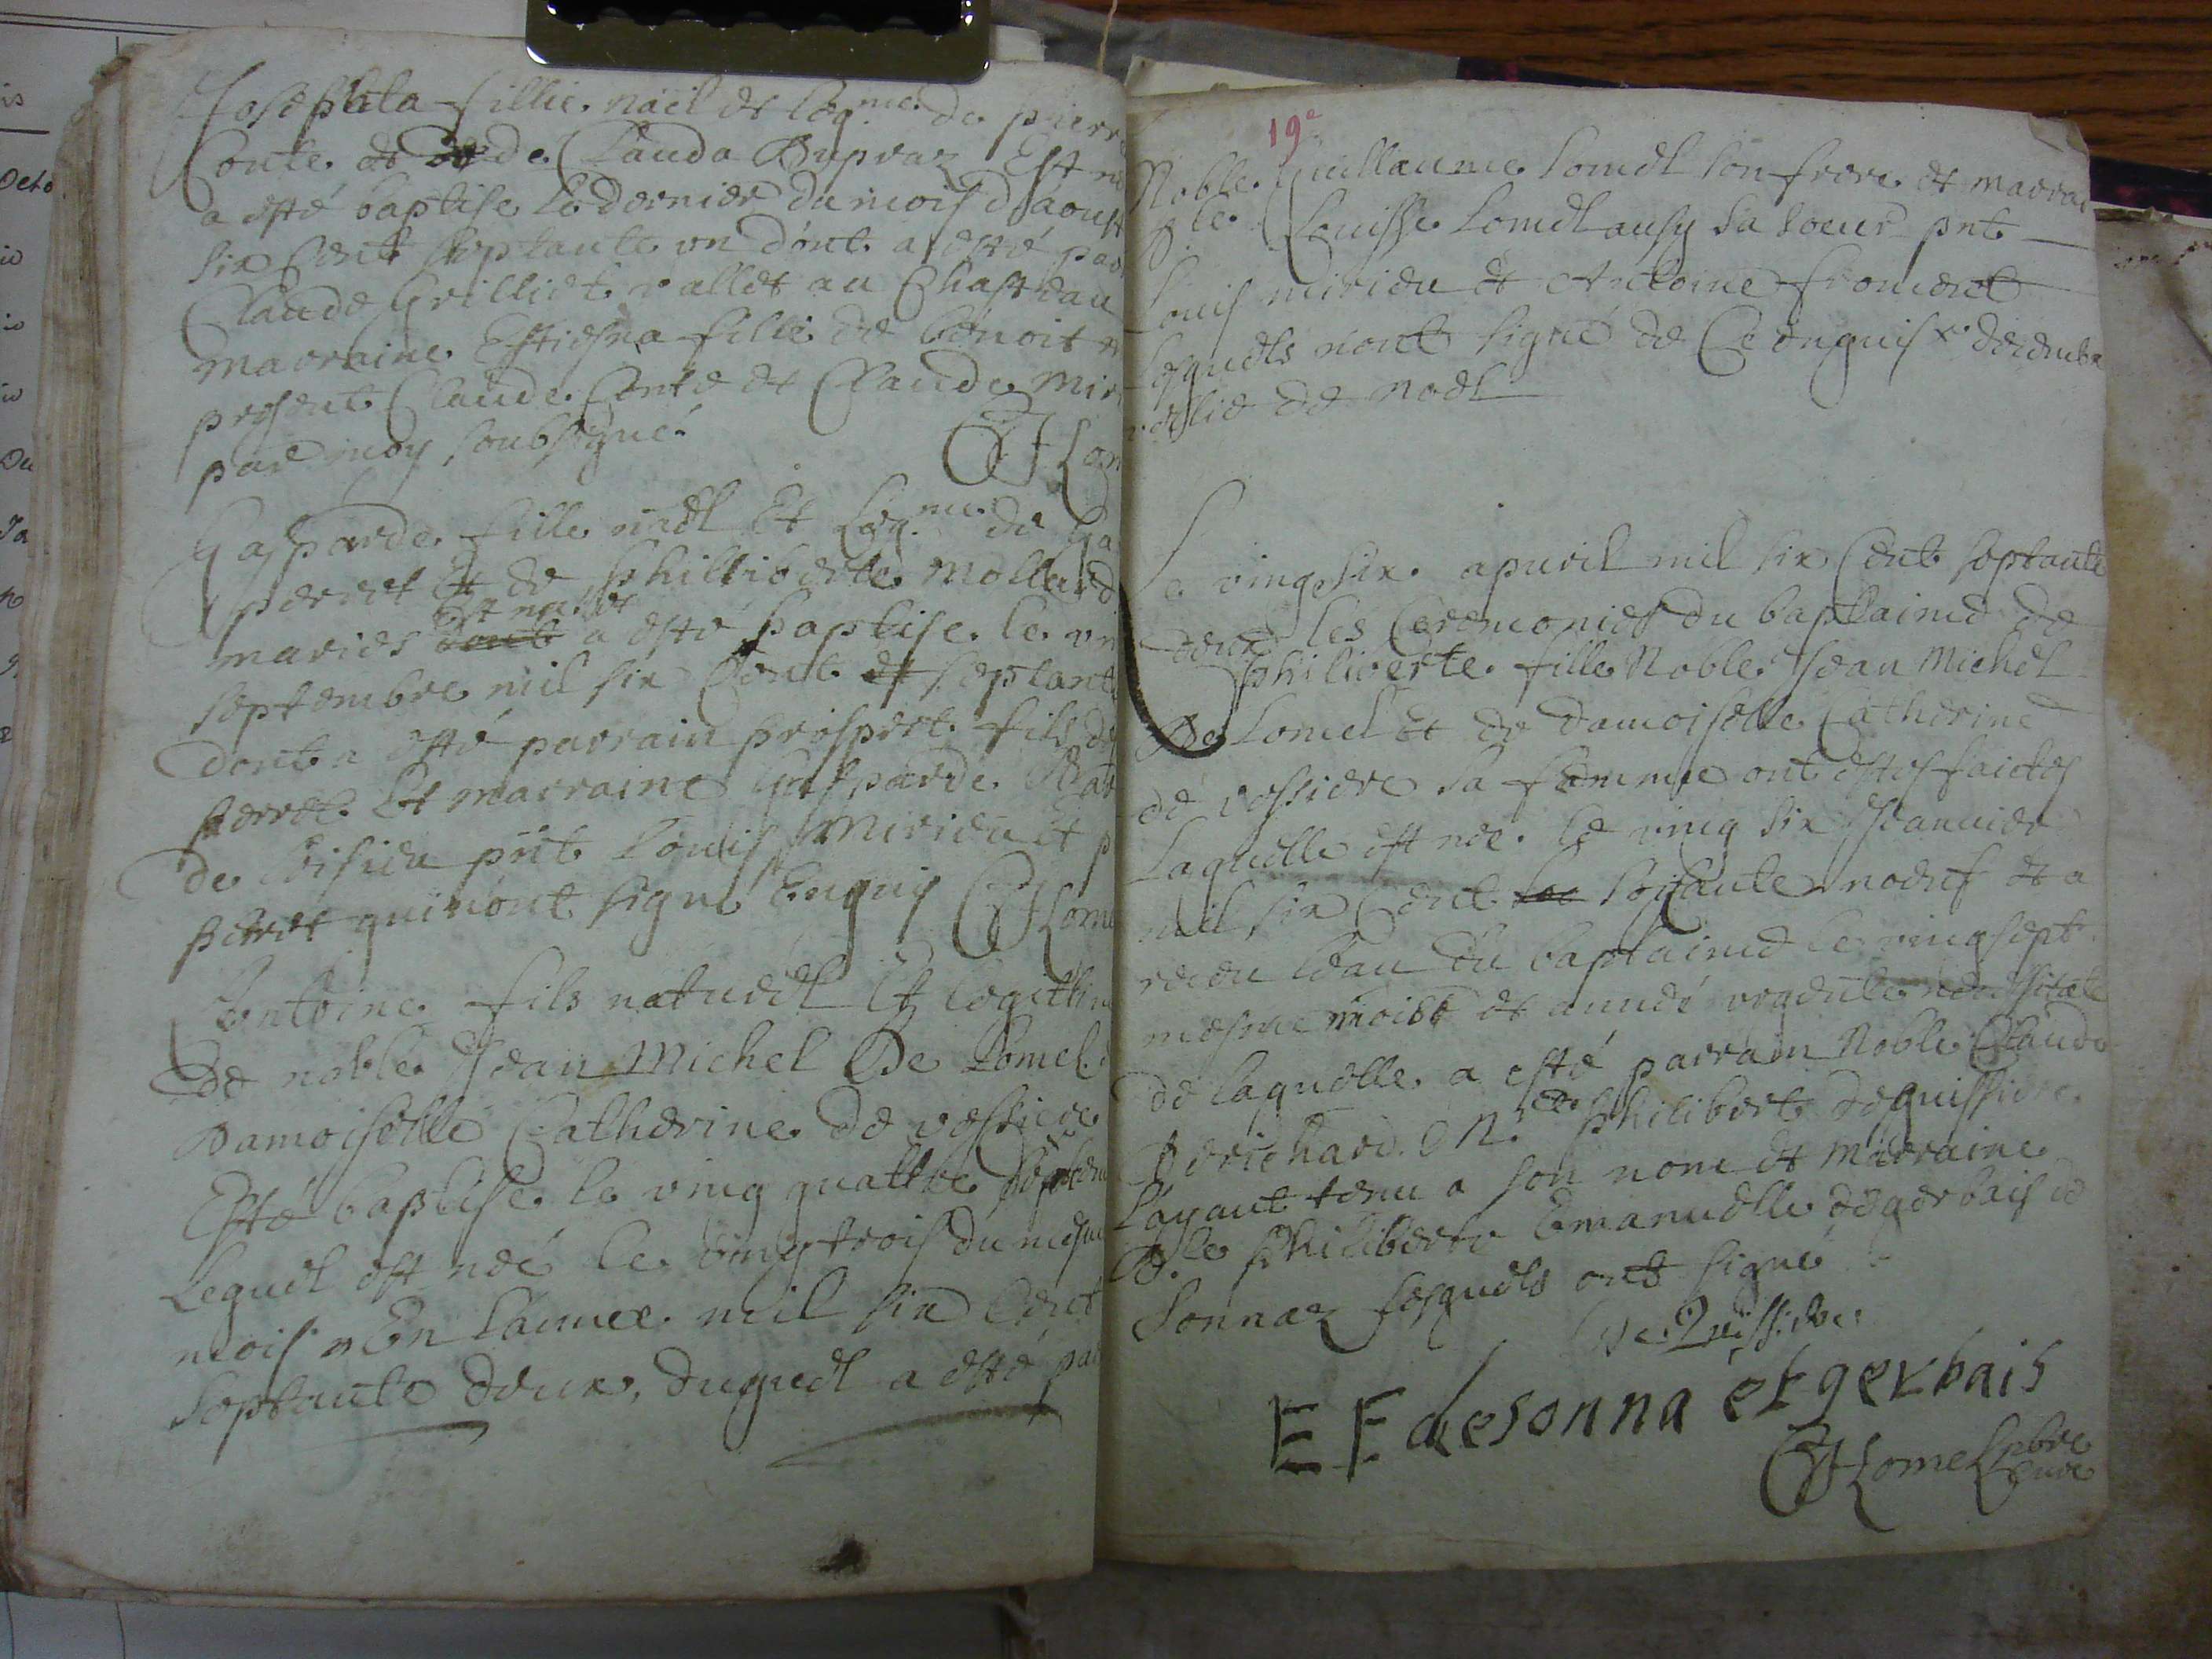 Josephta fillie. nāēl et Leg.me de pierre
Conte et de Clauda Dupraz Est né
a esté baptise le dernier du mois d'aoust
six Cent septante un dont a esté par
Claude Grilliet vallet au Chasteau
marraine Estiesna fille de Benoit
present Claude Conte et Claude Miri
par moy soubsigné.
Gasparde fille nāēl Et Leg.me de Ga
perret Et de Philliberte Mollard
est née et
maries a esté baptise le
septembre mil six Cent septante
dont a esté parrain prospret fils de
perret Et marraine Gasparde
de pn̄t Louis Mirieu et p
perret qui n'ont signe Enquis
Antoine fils naturel Et Legittime
De noble Jean Michel De Lomel
Damoiselle Catherine de vessiere
Esté baptise le ving quattre septem
Lequel est neé le ving trois du mesme
mois En L'annee mil six Cent
septante deux, duquel a esté par
19e
Noble Guillaume Lomel son frere et marrai
Louisse Lomel ausy sa soeur pnt
Louis mirieu et Antoine froment
Lesquels n'ont signé de Ce enquis
de noel
Le ving six apuril mil six Cent septante
deux les Ceremonies du baptaime de
philiberte fille Noble Jean Michel
De Lomel et de damoiselle Catherine
de vessiere sa femme ont estes faictes
Laquelle est née le ving six Jeanvier
mil six Cent soixante noeuf et a
receu L'eau du baptaime le ving sept
mesme mois et année necessitate
de laquelle a esté parrain Noble Claude
de Richard N. Philibert dequissiere
L'ayant tenu a son nom et marraine
D.le philiberte Emanuelle degerbais de
Sonnaz Lesquels ont signé
De Quissiere
EF desonna et gerbais
Lomel pbre
Curé